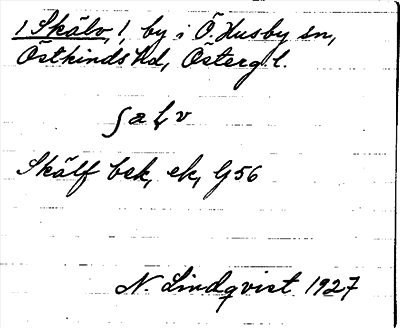 1 Skälv, 1 by i Ö. Husby sn,
Östkinds hd, Östergl.
Skälf bsk, ek, G56
N. Lindqvist 1927